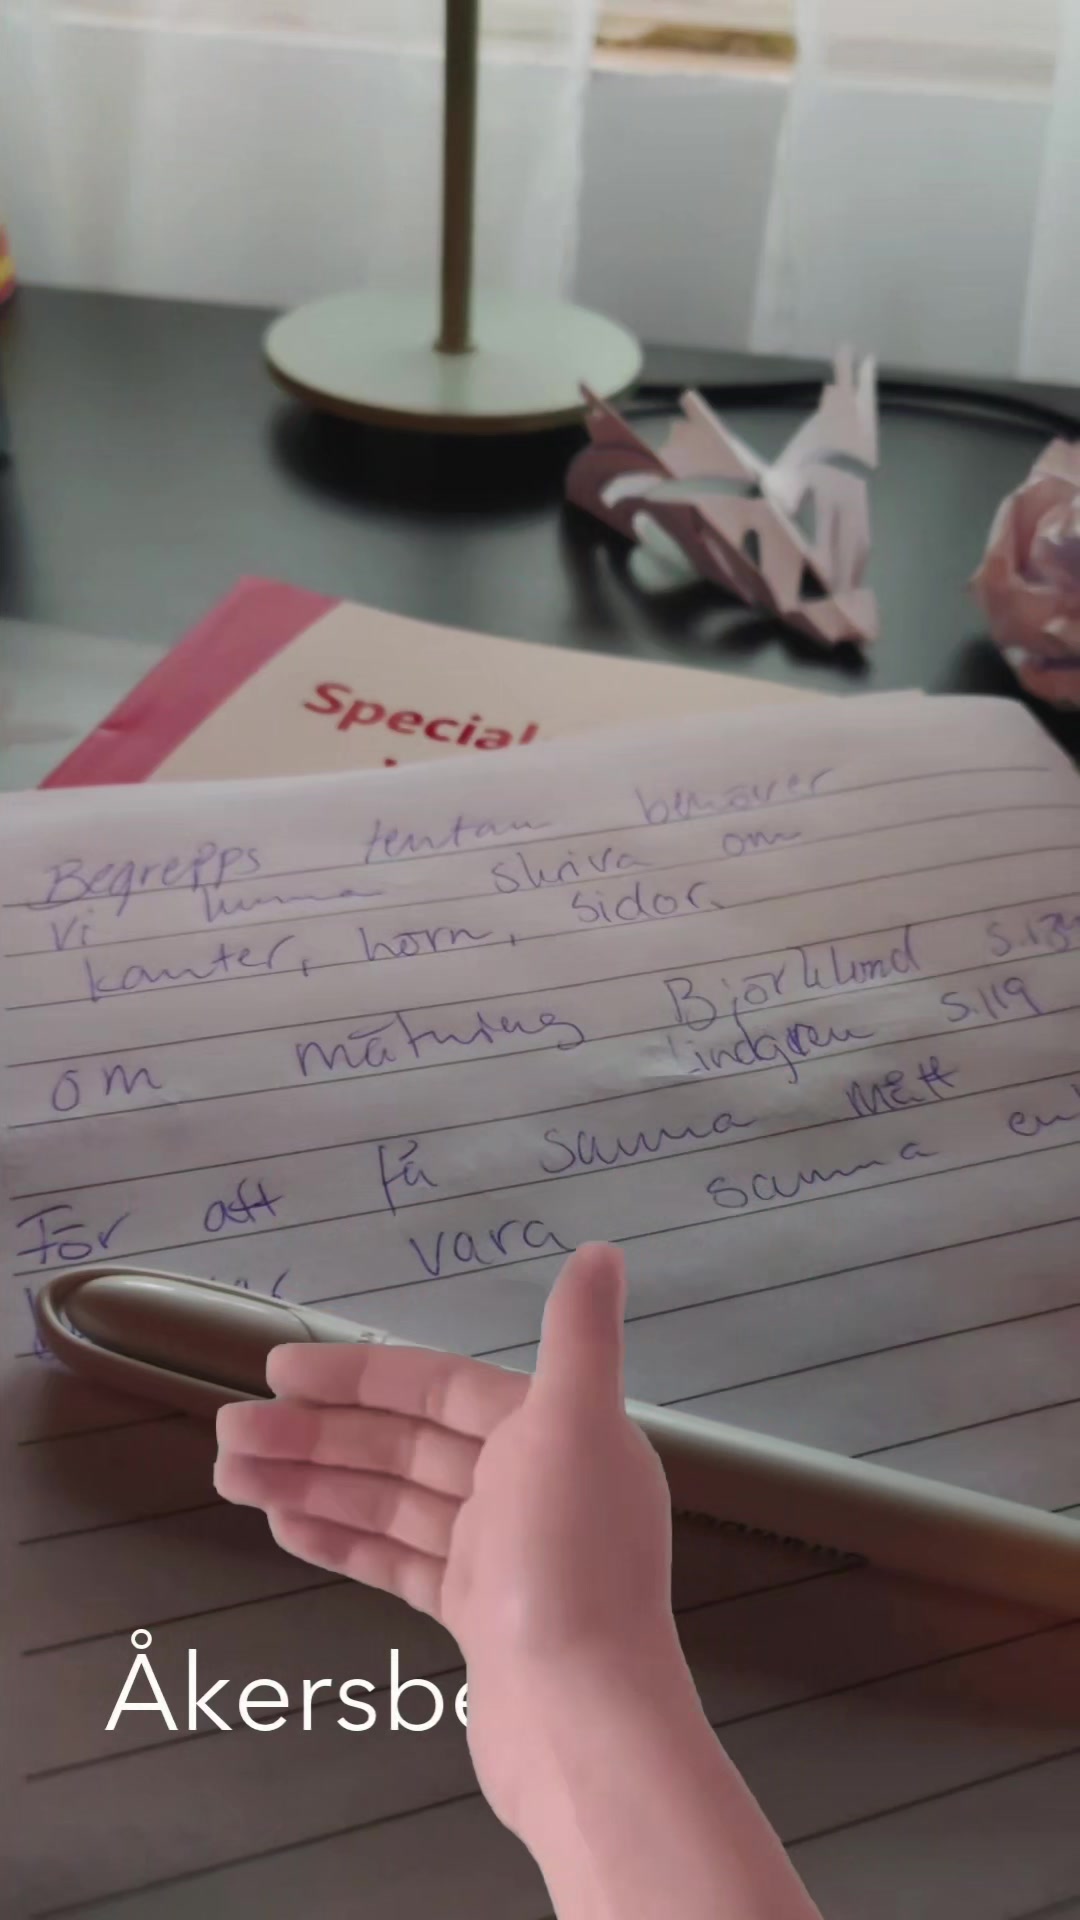 Special
Begrepps tentan behöver
vi kunna skriva om
kanter, hörn, sidor.
om mätning Björklund
Lindgren s.119
För att få samma mått
vara samma
Åkersbe